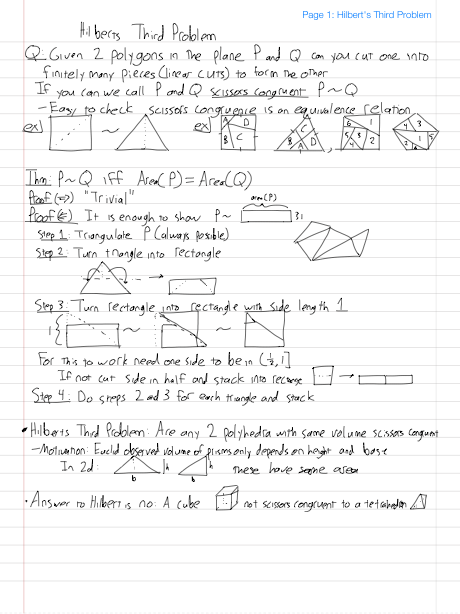 Page 1: Hilbert's Third Problem
Hilberts Third Problem
Q: Given 2 polygons in the plane P and Q can you cut one into
finitely many pieces (linear cuts) to form the other
If you can we call P and Q scissors congruent P ~ Q
- Easy to check scissors congruence is an equivalence relation
ex) ~ ex) A D B C C B D A 6 1 5 4 3 2 3 4 5 2 1
Thm: P ~ Q iff Area(P) = Area(Q)
Proof (⇒) "Trivial"
area(P)
Proof (⇐) It is enough to show P ~ 31
Step 1: Triangulate P (always possible)
Step 2: Turn triangle into rectangle
Step 3: Turn rectangle into rectangle with side length 1
1 ~ ~
For this to work need one side to be in (½, 1]
If not cut side in half and stack into rectangle
Step 4: Do steps 2 and 3 for each triangle and stack
• Hilberts Third Problem: Are any 2 polyhedra with same volume scissors congruent
- Motivation: Euclid observed volume of prisms only depends on height and base
In 2d: h h these have same area
b b
• Answer to Hilbert is no: A cube not scissors congruent to a tetrahedron